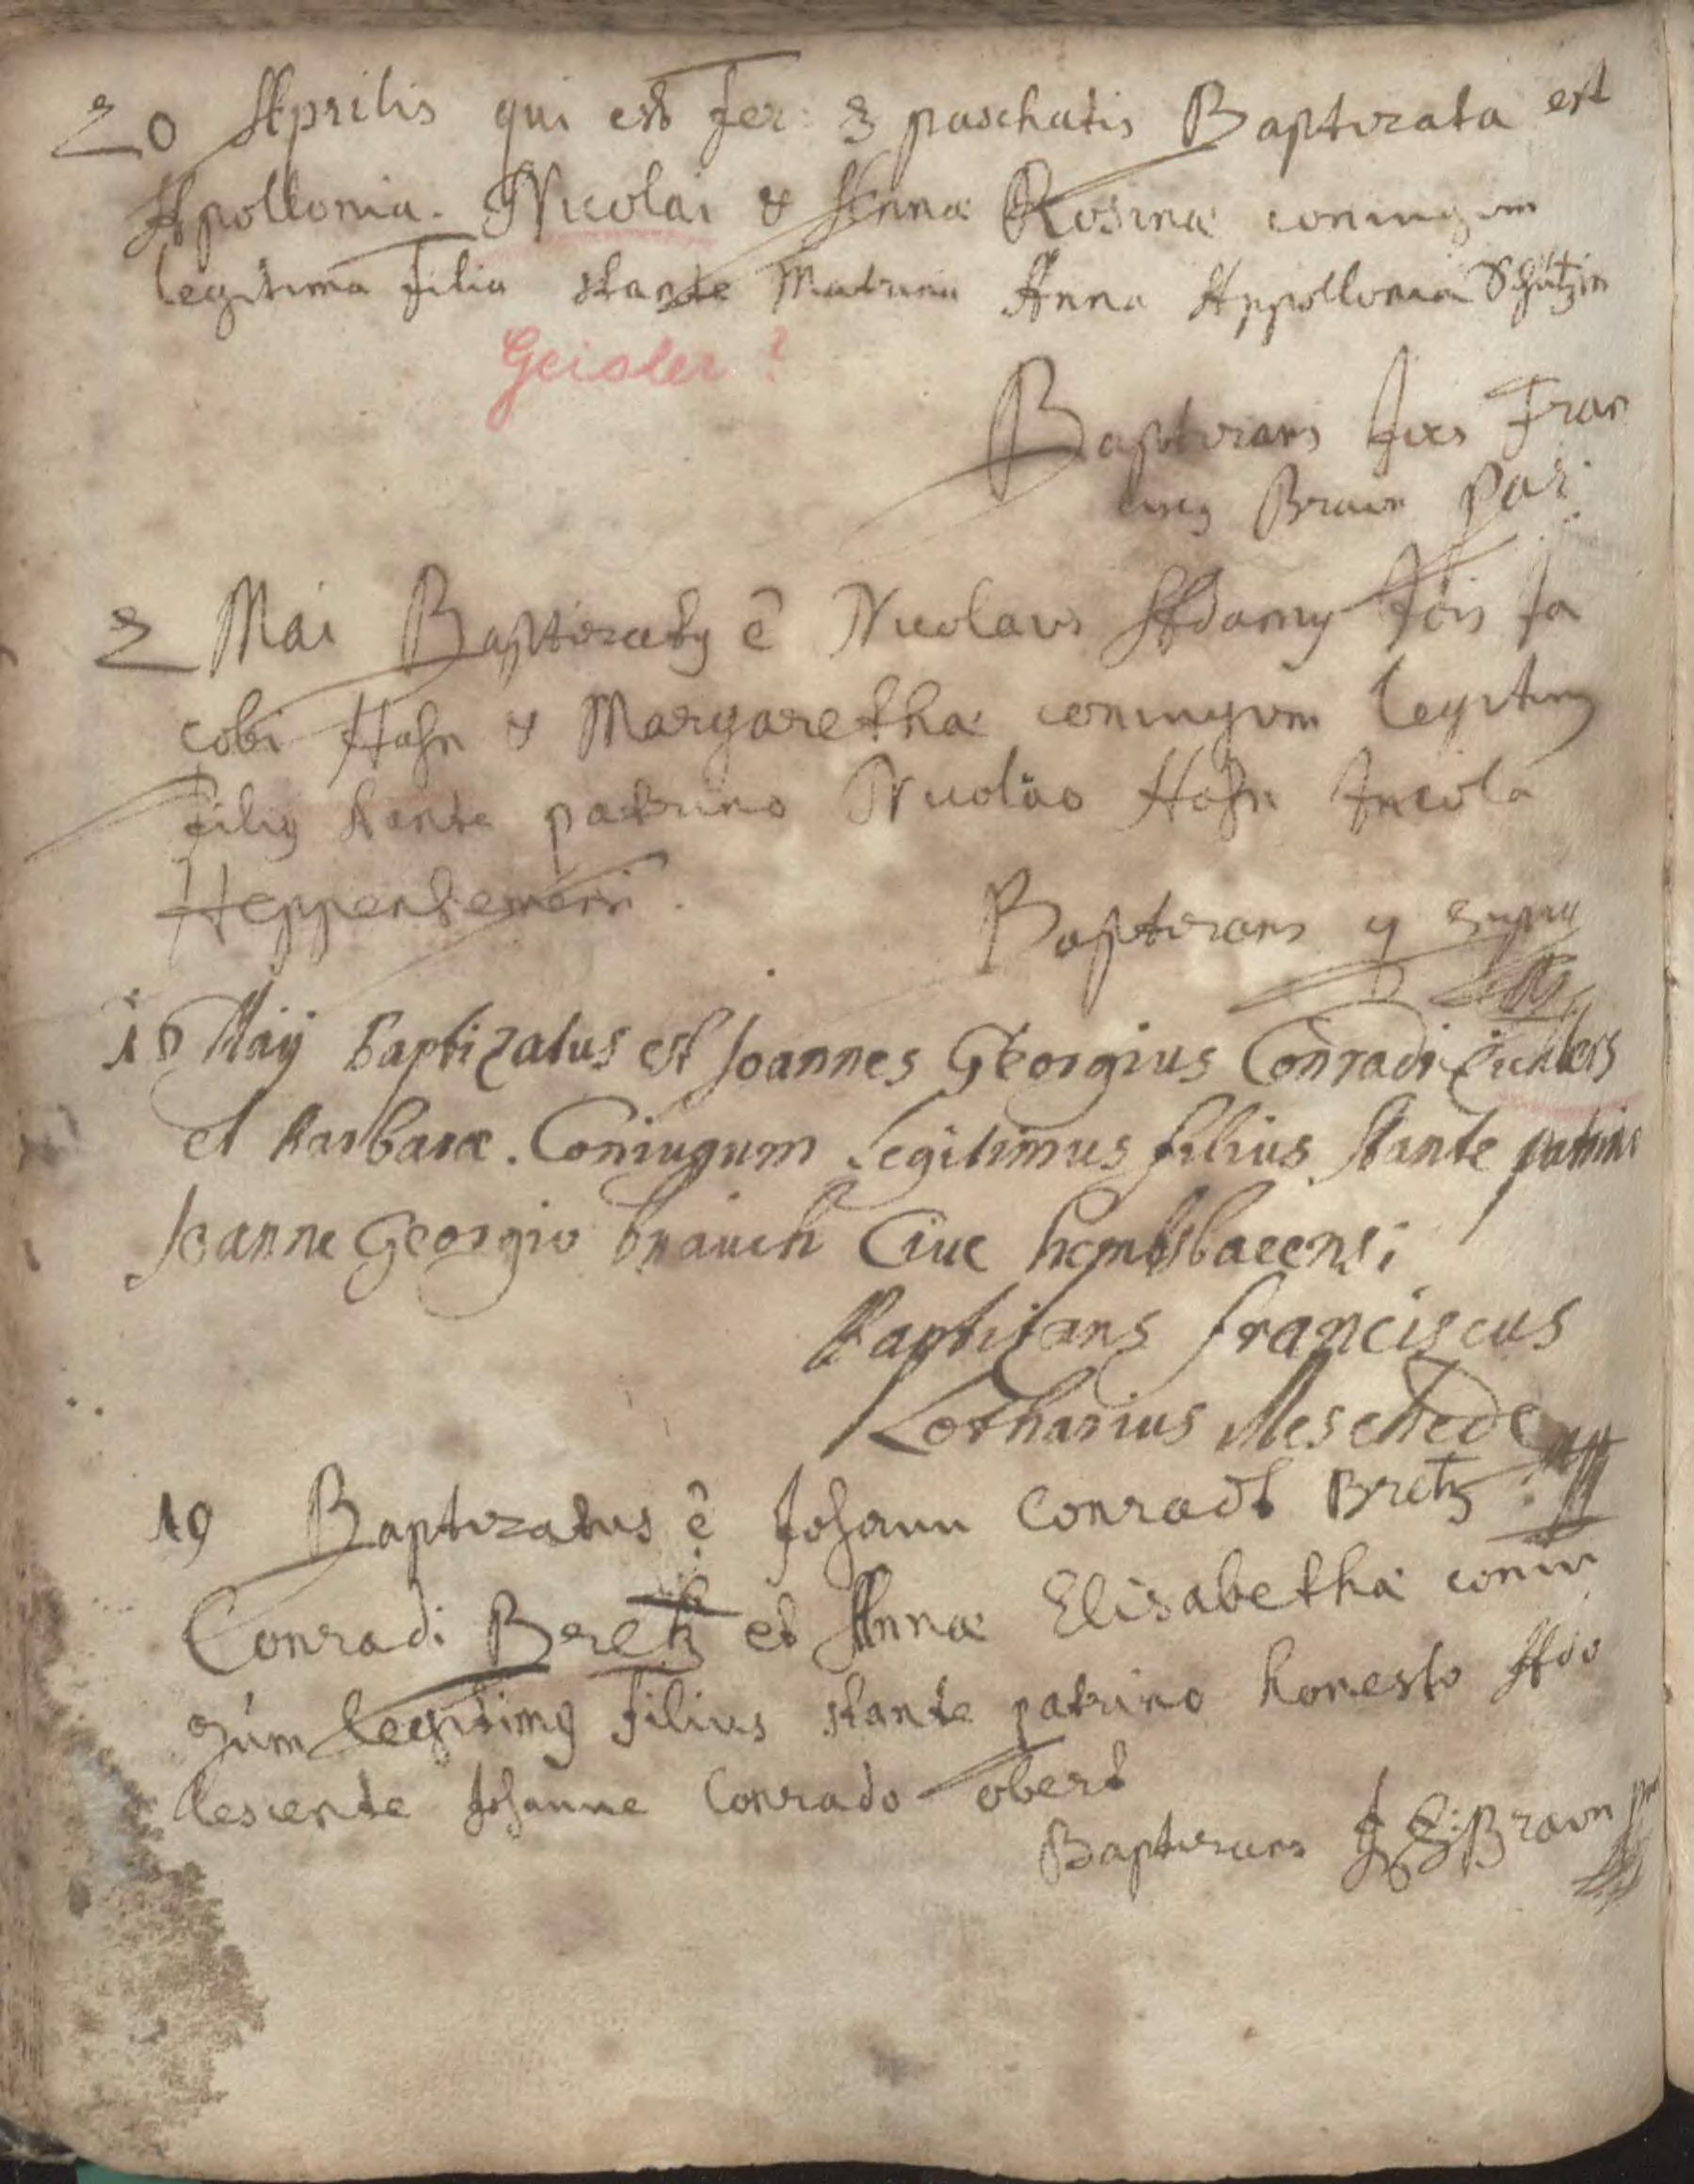 20 Aprilis qui est fer: 3 paschatis Baptizata est
Apollonia. Nicolai & Annæ Rosinæ coniugum
legitima filia stante Matrina Anna Appollonia Schützin
Geisler?
Baptizans Joes Fran
ciscg Braun Par:
2 Mai Baptizatg ê Nicolaus Adamg Jois Ja
cobi Hahn & Margarethæ coniugum legitimg
filig stante patrino Nicolao Hahn Incola
Heppenhemensi.
Baptizans q supra
18 Maÿ baptizatus est Joannes Georgius Conradi Eichlers
et Barbaræ. Coniugum legitimus filius stante patrino
Joanne Georgio brauch Ciue hembsbacensi
Baptizans franciscus
Lotharius Meschede
19 Baptizatus ê Johann Conradt Bretz
Conradi Bretz et Annæ Elisabethæ coniu
gum legitimg filius stante patrino honesto Ado
lescente Johanne Conrado obert
Baptizans J F Braun